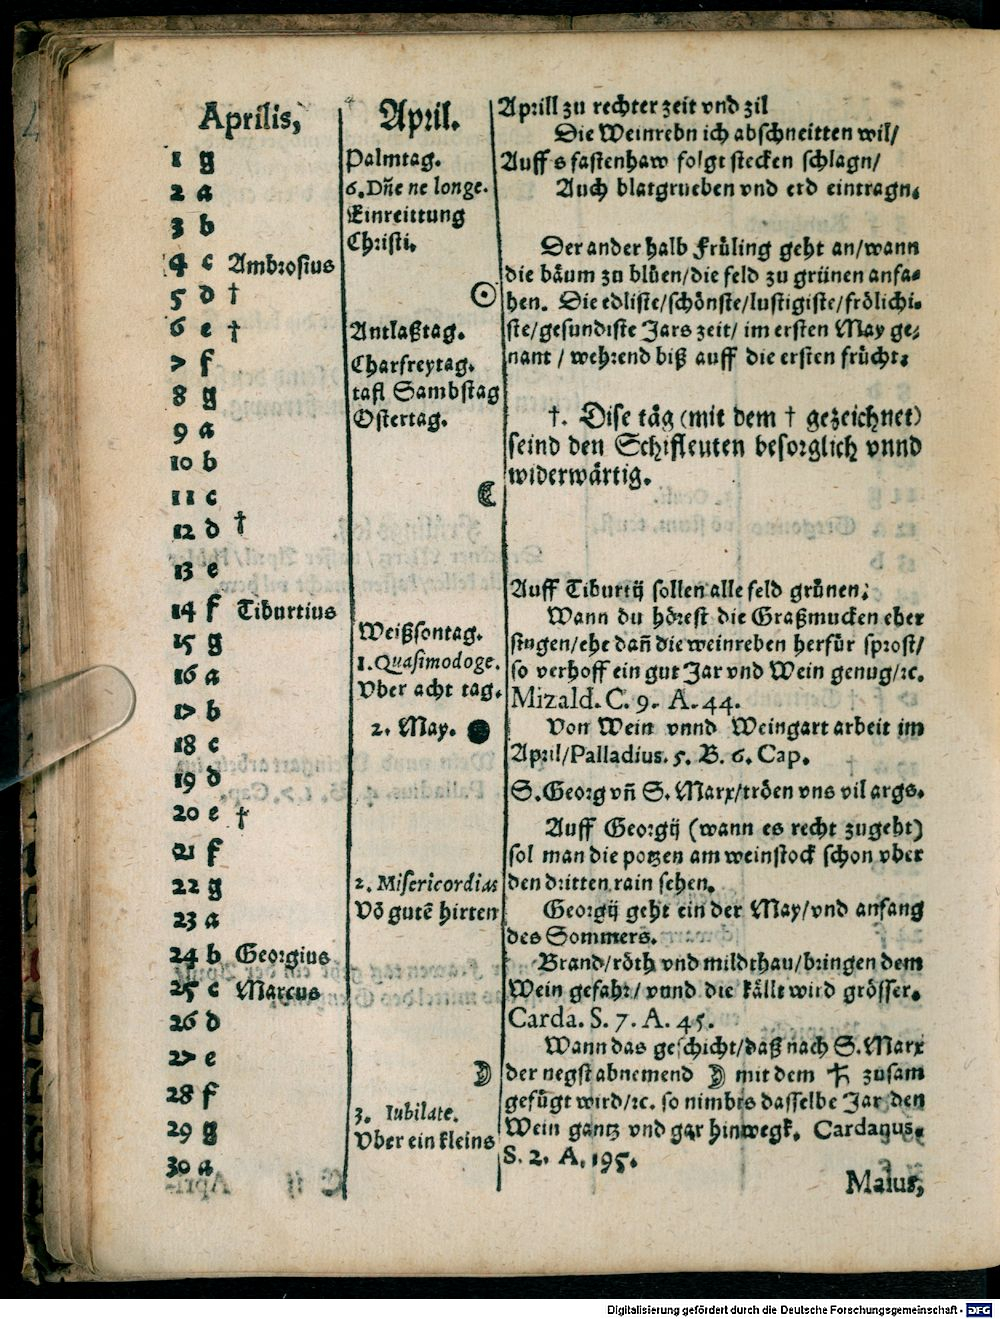 Aprilis,
1 g
2 a
3 b
4 c Ambrosius
5 d †
6 e †
7 f
8 g
9 a
10 b
11 c
12 d †
13 e
14 f Tiburtius
15 g
16 a
17 b
18 c
19 d
20 e †
21 f
22 g
23 a
24 b Georgius
25 c Marcus
26 d
27 e
28 f
29 g
30 a
April.
Palmtag.
6. Dñe ne longe.
Einreittung
Christi.
☉
Antlaßtag.
Charfreytag.
tafl Sambstag
Ostertag.
☾
Weißsontag.
1. Quasimodoge.
Vber acht tag.
2. May. ●
2. Misericordias
Võ gutẽ hirten
☽
3. Iubilate.
Vber ein kleins
Aprill zu rechter zeit vnd zil
Die Weinrebn ich abschneitten wil/
Auff s fastenhaw folgt stecken schlagn/
Auch blatgrueben vnd erd eintragn.
Der ander halb Früling geht an/wann
die bäum zu blüen/die feld zu grünen anfa-
hen. Die edliste/schönste/lustigiste/frölichi-
ste/gesundiste Jars zeit/ im ersten May ge-
nant / wehrend biß auff die ersten frücht.
†. Dise täg (mit dem † gezeichnet)
seind den Schifleuten besorglich vnnd
widerwärtig.
Auff Tiburtij sollen alle feld grünen.
Wann du hörest die Graßmucken eher
singen/ehe dañ die weinreben herfür sprost/
so verhoff ein gut Jar vnd Wein genug/ꝛc.
Mizald. C. 9. A. 44.
Von Wein vnnd Weingart arbeit im
April/Palladius. 5. B. 6. Cap.
S. Georg vñ S. Marx/tröen vns vil args.
Auff Georgij (wann es recht zugeht)
sol man die potzen am weinstock schon vber
den dritten rain sehen.
Georgij geht ein der May/vnd anfang
des Sommers.
Brand/röth vnd mildthau/bringen dem
Wein gefahr/ vnnd die källt wird grösser.
Carda. S. 7. A. 45.
Wann das geschicht/daß nach S. Marx
der negst abnemend ☽ mit dem ♄ zusam
gefügt wird/ꝛc. so nimbts dasselbe Jar den
Wein gantz vnd gar hinwegk. Cardanus.
S. 2. A. 195.
Maius,
Digitalisierung gefördert durch die Deutsche Forschungsgemeinschaft - DFG